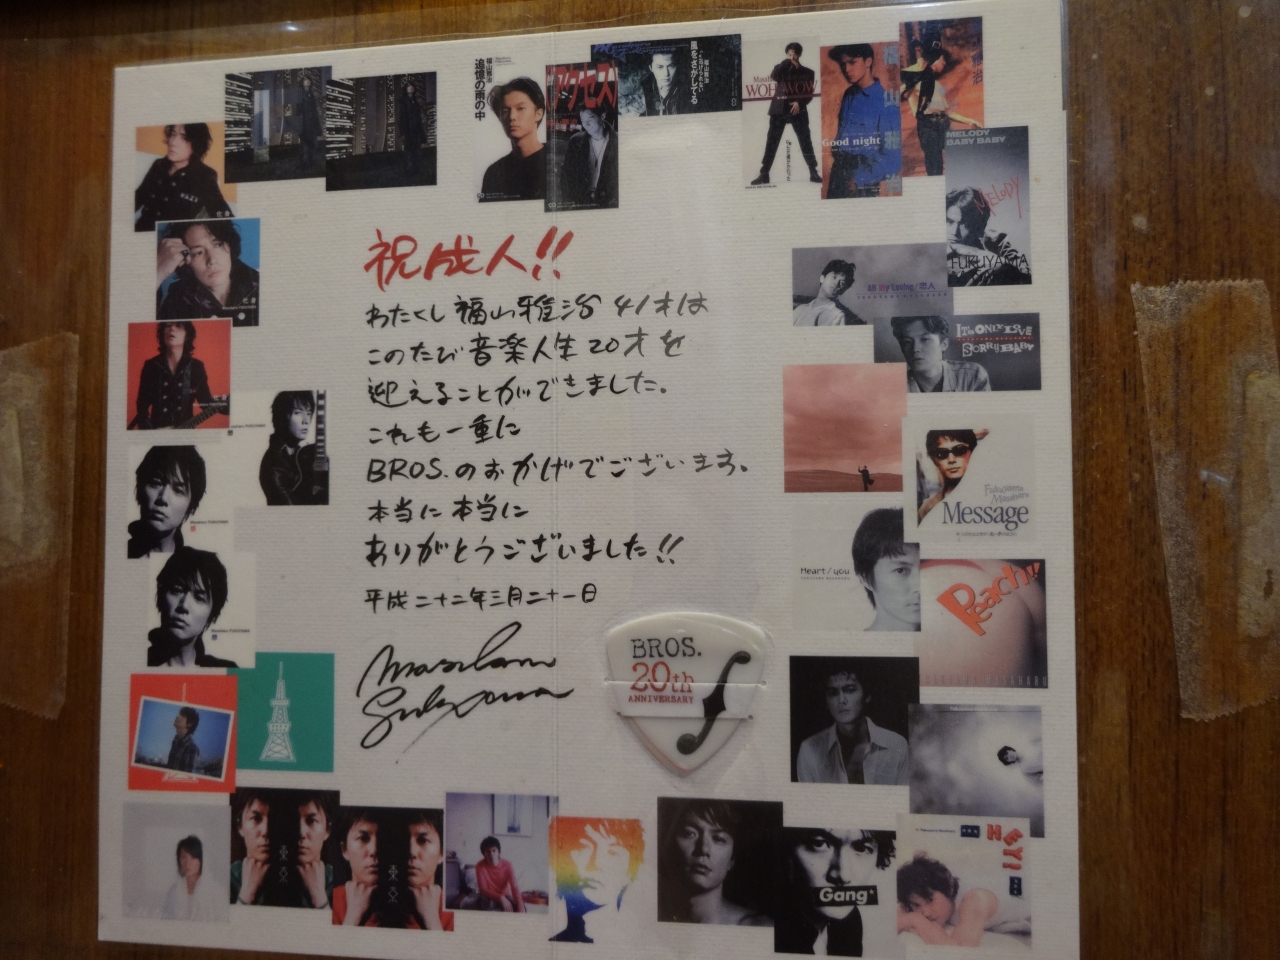 福山雅治
追憶の雨の中
アクセス
福山雅治
風をさがしてる
WOH WOW
Good night
福山雅治
MELODY
BABY BABY
MELODY
FUKUYAMA
All My Loving/恋人
IT'S ONLY LOVE
SORRY BABY
Fukuyama
Masaharu
Message
Heart/you
Peach!!
祝成人!!
わたくし福山雅治 41才は
このたび音楽人生20才を
迎えることができました。
これも一重に
BROS.のおかげでございます。
本当に本当に
ありがとうございました!!
平成二十二年三月二十一日
BROS.
20th
ANNIVERSARY
Gang*
HEY!